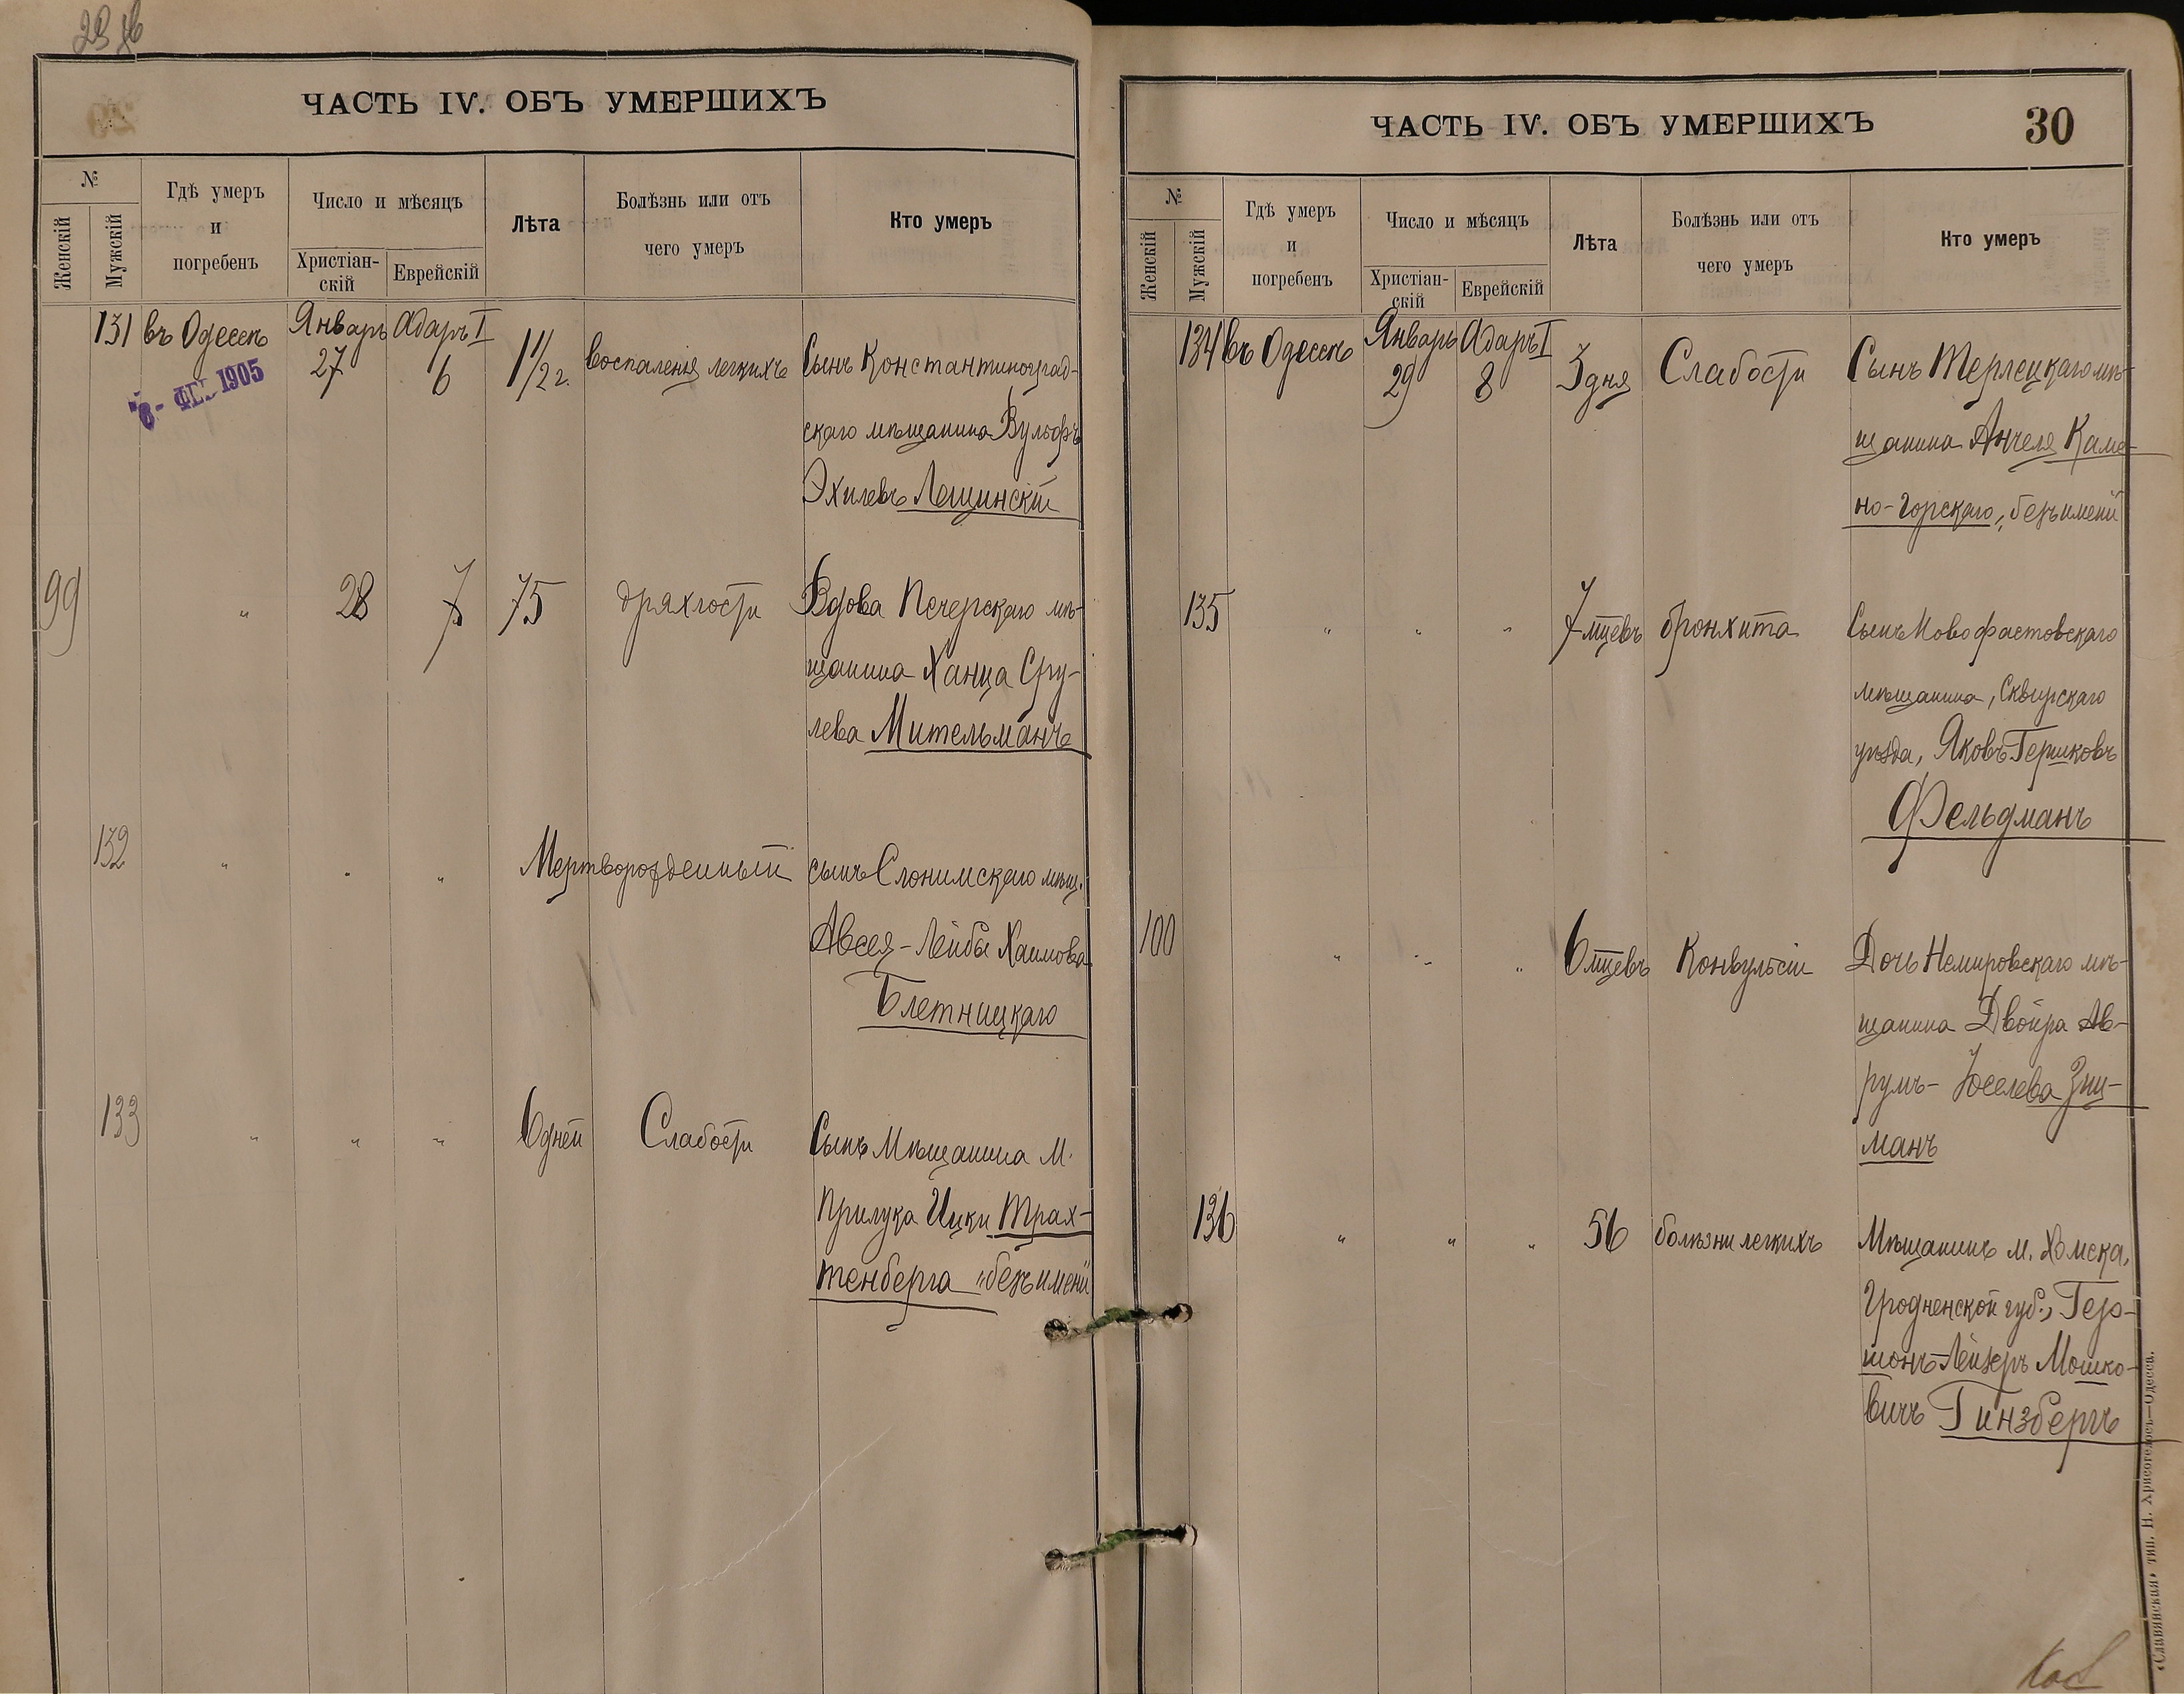 ЧАСТЬ IV. ОБЪ УМЕРШИХЪ
№
Женскій
Мужскій
Гдѣ умеръ
и
погребенъ
Число и мѣсяцъ
Христіан-
скій
Еврейскій
Лѣта
Болѣзнь или отъ
чего умеръ
Кто умеръ
131 въ Одессѣ Январь Адаръ I
27 6 1 1/2 г. воспаленія легкихъ Сынъ Константиноград-
ФЕВ 1905
скаго мѣщанина Вульфъ
Эхилевъ Лещинскій
99 " 28 7 75 дряхлости Вдова Печерскаго мѣ-
щанина Ханца Сру-
лева Мительманъ
132 " " " Мертворожденный сынъ Слонимскаго мѣщ.
Авсея-Лейбы Хаимова
Блетницкаго
133 " " " 6 дней Слабости Сынъ Мѣщанина м.
Прилука Ицки Трах-
тенберга "безъ имени"
ЧАСТЬ IV. ОБЪ УМЕРШИХЪ 30
№
Женскій
Мужскій
Гдѣ умеръ
и
погребенъ
Число и мѣсяцъ
Христіан-
скій
Еврейскій
Лѣта
Болѣзнь или отъ
чего умеръ
Кто умеръ
134 въ Одессѣ Январь Адаръ I
29 8 3 дня Слабости Сынъ Терлецкаго мѣ-
щанина Анчеля Каме-
но-Горскаго, "безъ имени"
135 " " " 7 мцевъ бронхита Сынъ Новофастовскаго
мѣщанина, Сквирскаго
уѣзда, Яковъ Гершковъ
Фельдманъ
100 " " " 6 мцевъ Конвульсіи Дочь Немировскаго мѣ-
щанина Двойра Ав-
румъ-Іоселева Зиц-
манъ
136 " " " 56 болѣзни легкихъ Мѣщанинъ м. Хомска,
Гродненской губ., Гер-
шонъ-Лейзеръ Мошко-
вичъ Гинзбергъ
«Славянская» тип. Н. Хрисогелосъ—Одесса.